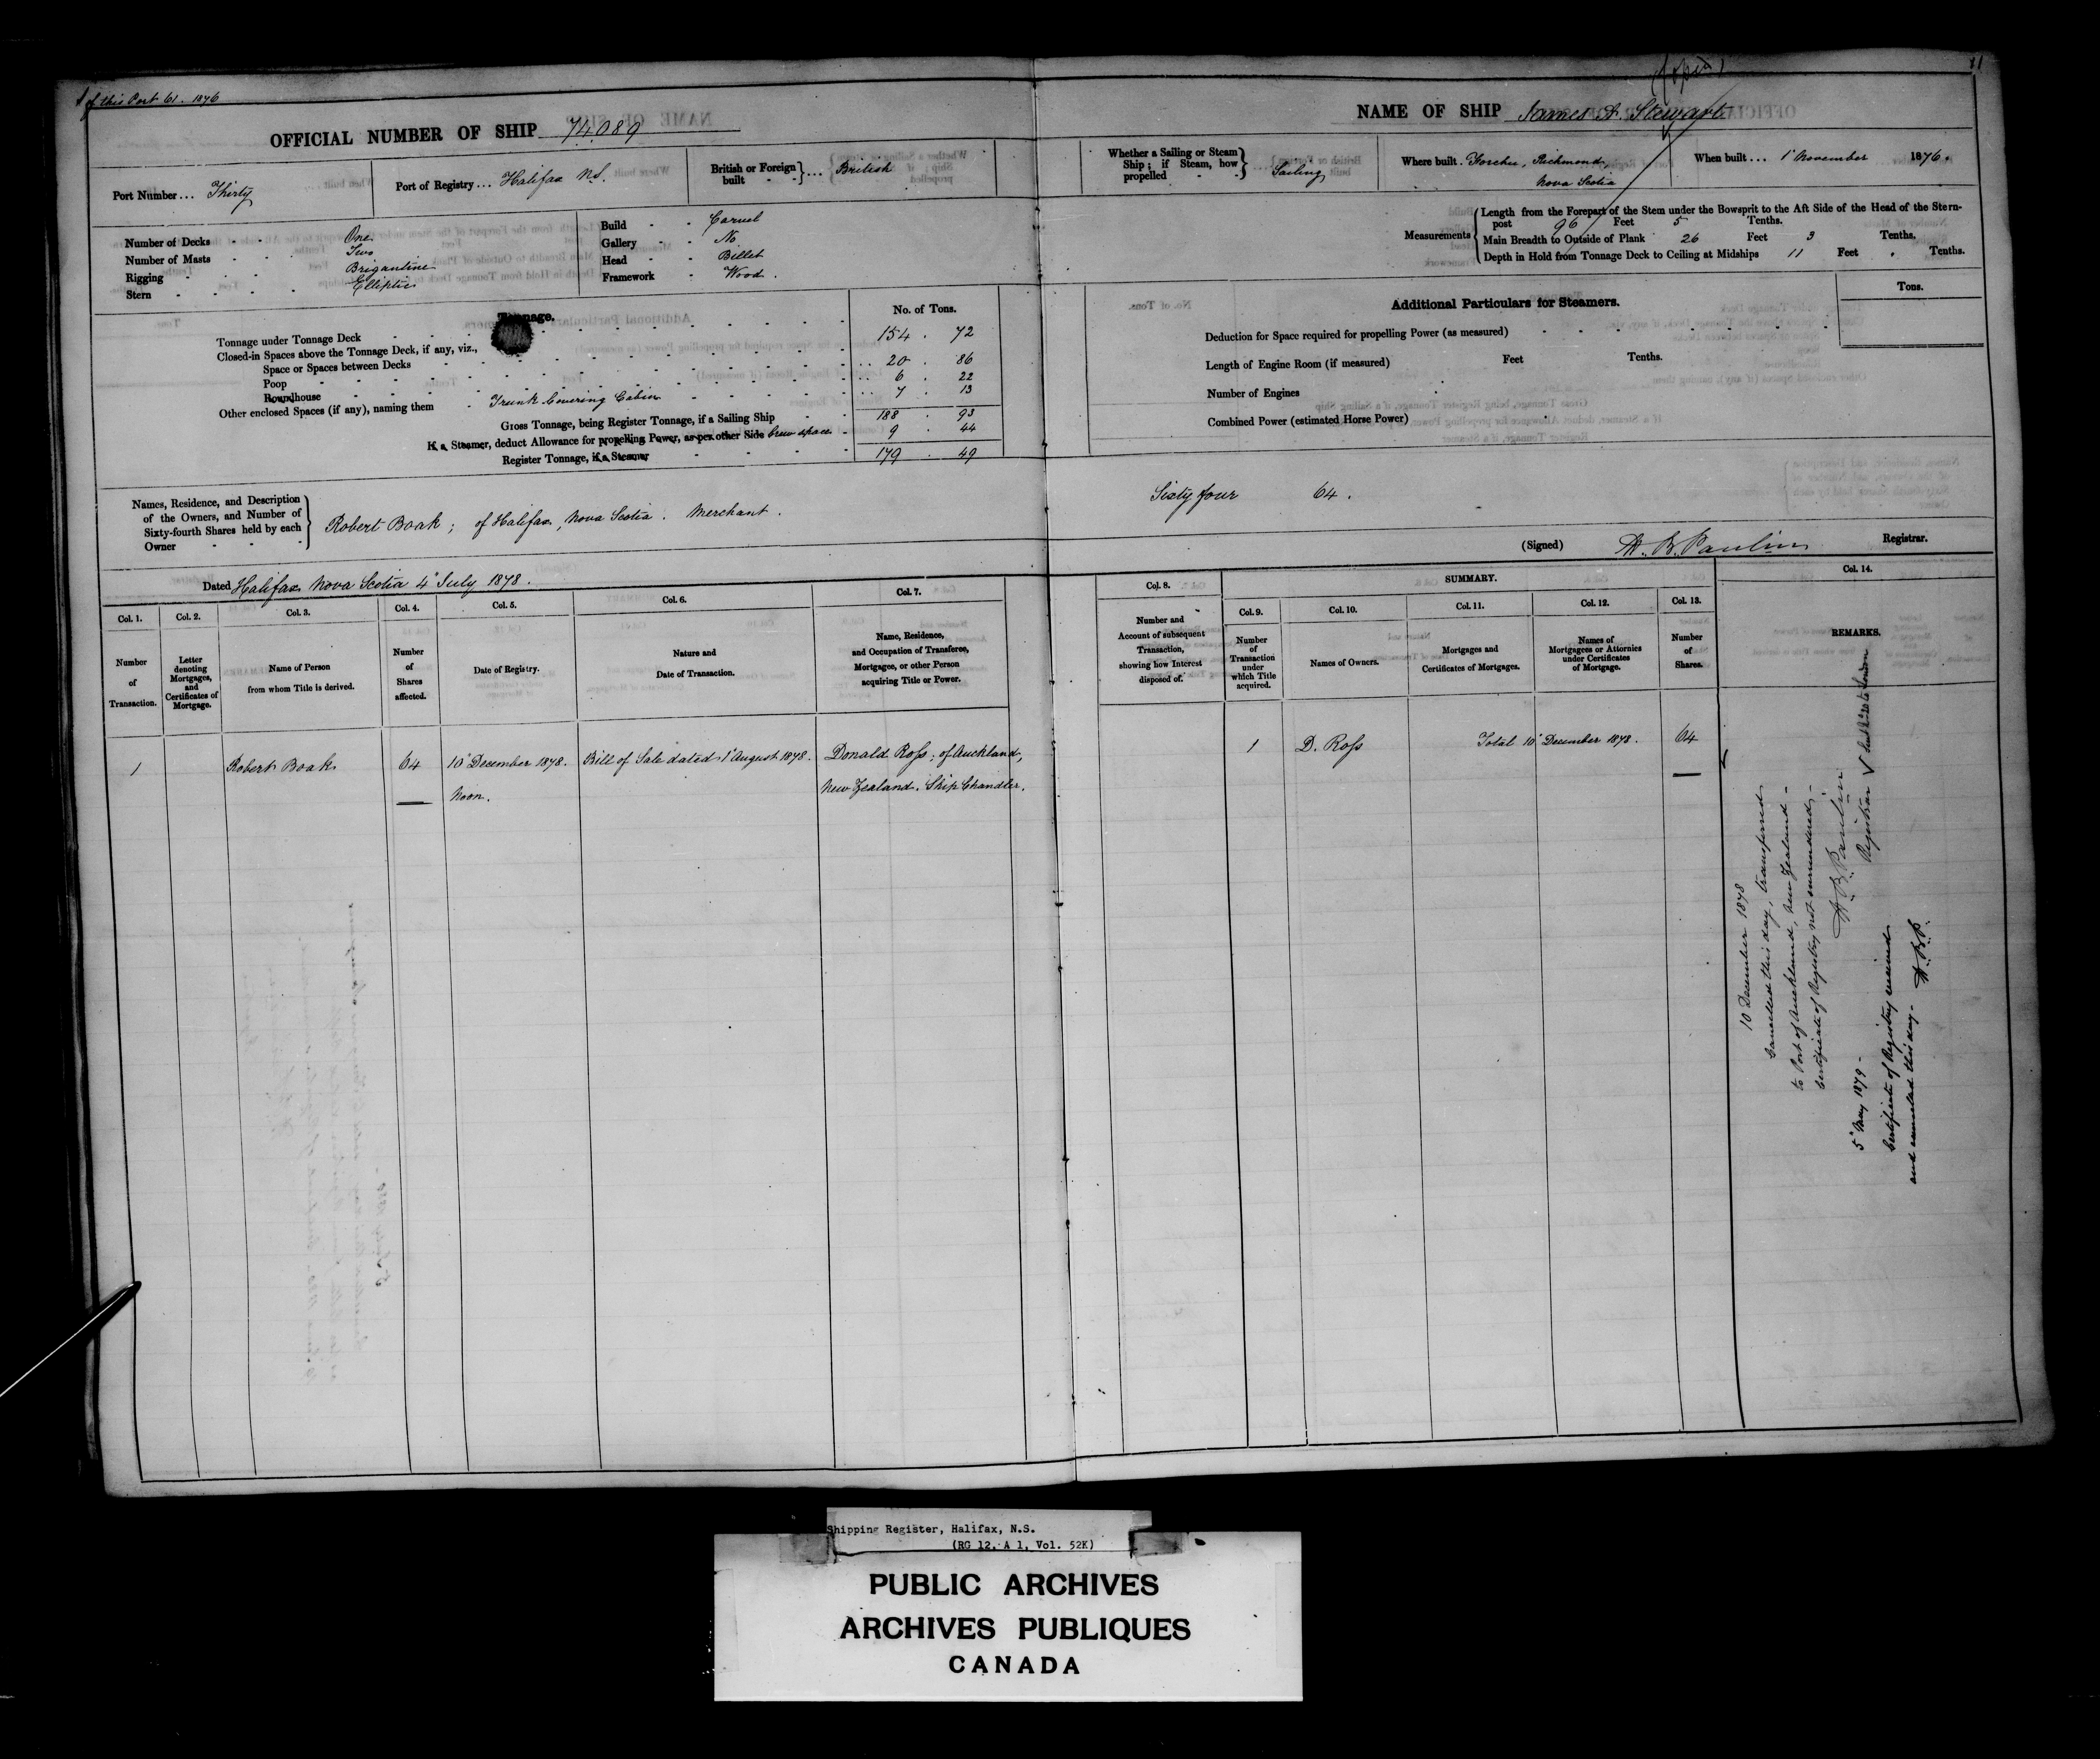 of this Port 61. 1876
OFFICIAL NUMBER OF SHIP 74089
Port Number ... Thirty
Port of Registry ... Halifax N.S.
British or Foreign built } ... British
Number of Decks - - One
Number of Masts - - Two
Rigging - - Brigantine
Stern - - Elliptic
Build - - Carvel
Gallery - - No
Head - - Billet
Framework - Wood.
Tonnage.
No. of Tons.
Tonnage under Tonnage Deck 154 . 72
Closed-in Spaces above the Tonnage Deck, if any, viz.,
Space or Spaces between Decks .. 20 . 86
Poop .. 6 . 22
Roundhouse .. 7 . 13
Other enclosed Spaces (if any), naming them - Trunk Covering Cabin
Gross Tonnage, being Register Tonnage, if a Sailing Ship 188 . 93
If a Steamer, deduct Allowance for propelling Power, as per other Side Crew space 9 . 44
Register Tonnage, if a Steamer 179 . 49
Names, Residence, and Description of the Owners, and Number of Sixty-fourth Shares held by each Owner
Robert Boak ; of Halifax, Nova Scotia . Merchant .
Dated Halifax Nova Scotia 4th July 1878.
Col. 1. Col. 2. Col. 3. Col. 4. Col. 5. Col. 6. Col. 7.
Number of Transaction.
Letter denoting Mortgages, and Certificates of Mortgage.
Name of Person from whom Title is derived.
Number of Shares affected.
Date of Registry.
Nature and Date of Transaction.
Name, Residence, and Occupation of Transferee, Mortgagee, or other Person acquiring Title or Power.
1 Robert Boak 64 10th December 1878. Bill of Sale dated 1st August 1878. Donald Ross; of Auckland,
Noon. New Zealand. Ship Chandler.
11
NAME OF SHIP James A. Stewart
Whether a Sailing or Steam Ship; if Steam, how propelled } Sailing
Where built. Forchu, Richmond, Nova Scotia
When built ... 1st November 1876.
Measurements
Length from the Forepart of the Stem under the Bowsprit to the Aft Side of the Head of the Stern-
post 96 Feet 5 Tenths.
Main Breadth to Outside of Plank 26 Feet 3 Tenths.
Depth in Hold from Tonnage Deck to Ceiling at Midships 11 Feet . Tenths.
Additional Particulars for Steamers.
Tons.
Deduction for Space required for propelling Power (as measured)
Length of Engine Room (if measured) Feet Tenths.
Number of Engines
Combined Power (estimated Horse Power)
Sixty four 64 .
(Signed) H. B. Paulin Registrar.
Col. 8. SUMMARY. Col. 14.
Col. 9. Col. 10. Col. 11. Col. 12. Col. 13.
Number and Account of subsequent Transaction, showing how Interest disposed of.
Number of Transaction under which Title acquired.
Names of Owners.
Mortgages and Certificates of Mortgages.
Names of Mortgagees or Attornies under Certificates of Mortgage.
Number of Shares.
REMARKS.
1 D. Ross Total 10th December 1878. 64
10 December 1878
Cancelled this day, transferred
to Port of Auckland, New Zealand -
Certificate of Registry not surrendered -
H. B. Paulin
Registrar
5th May 1879 -
Certificate of Registry received
and cancelled this day - H.B.P.
Shipping Register, Halifax, N.S.
(RG 12, A 1, Vol. 52K)
PUBLIC ARCHIVES
ARCHIVES PUBLIQUES
CANADA